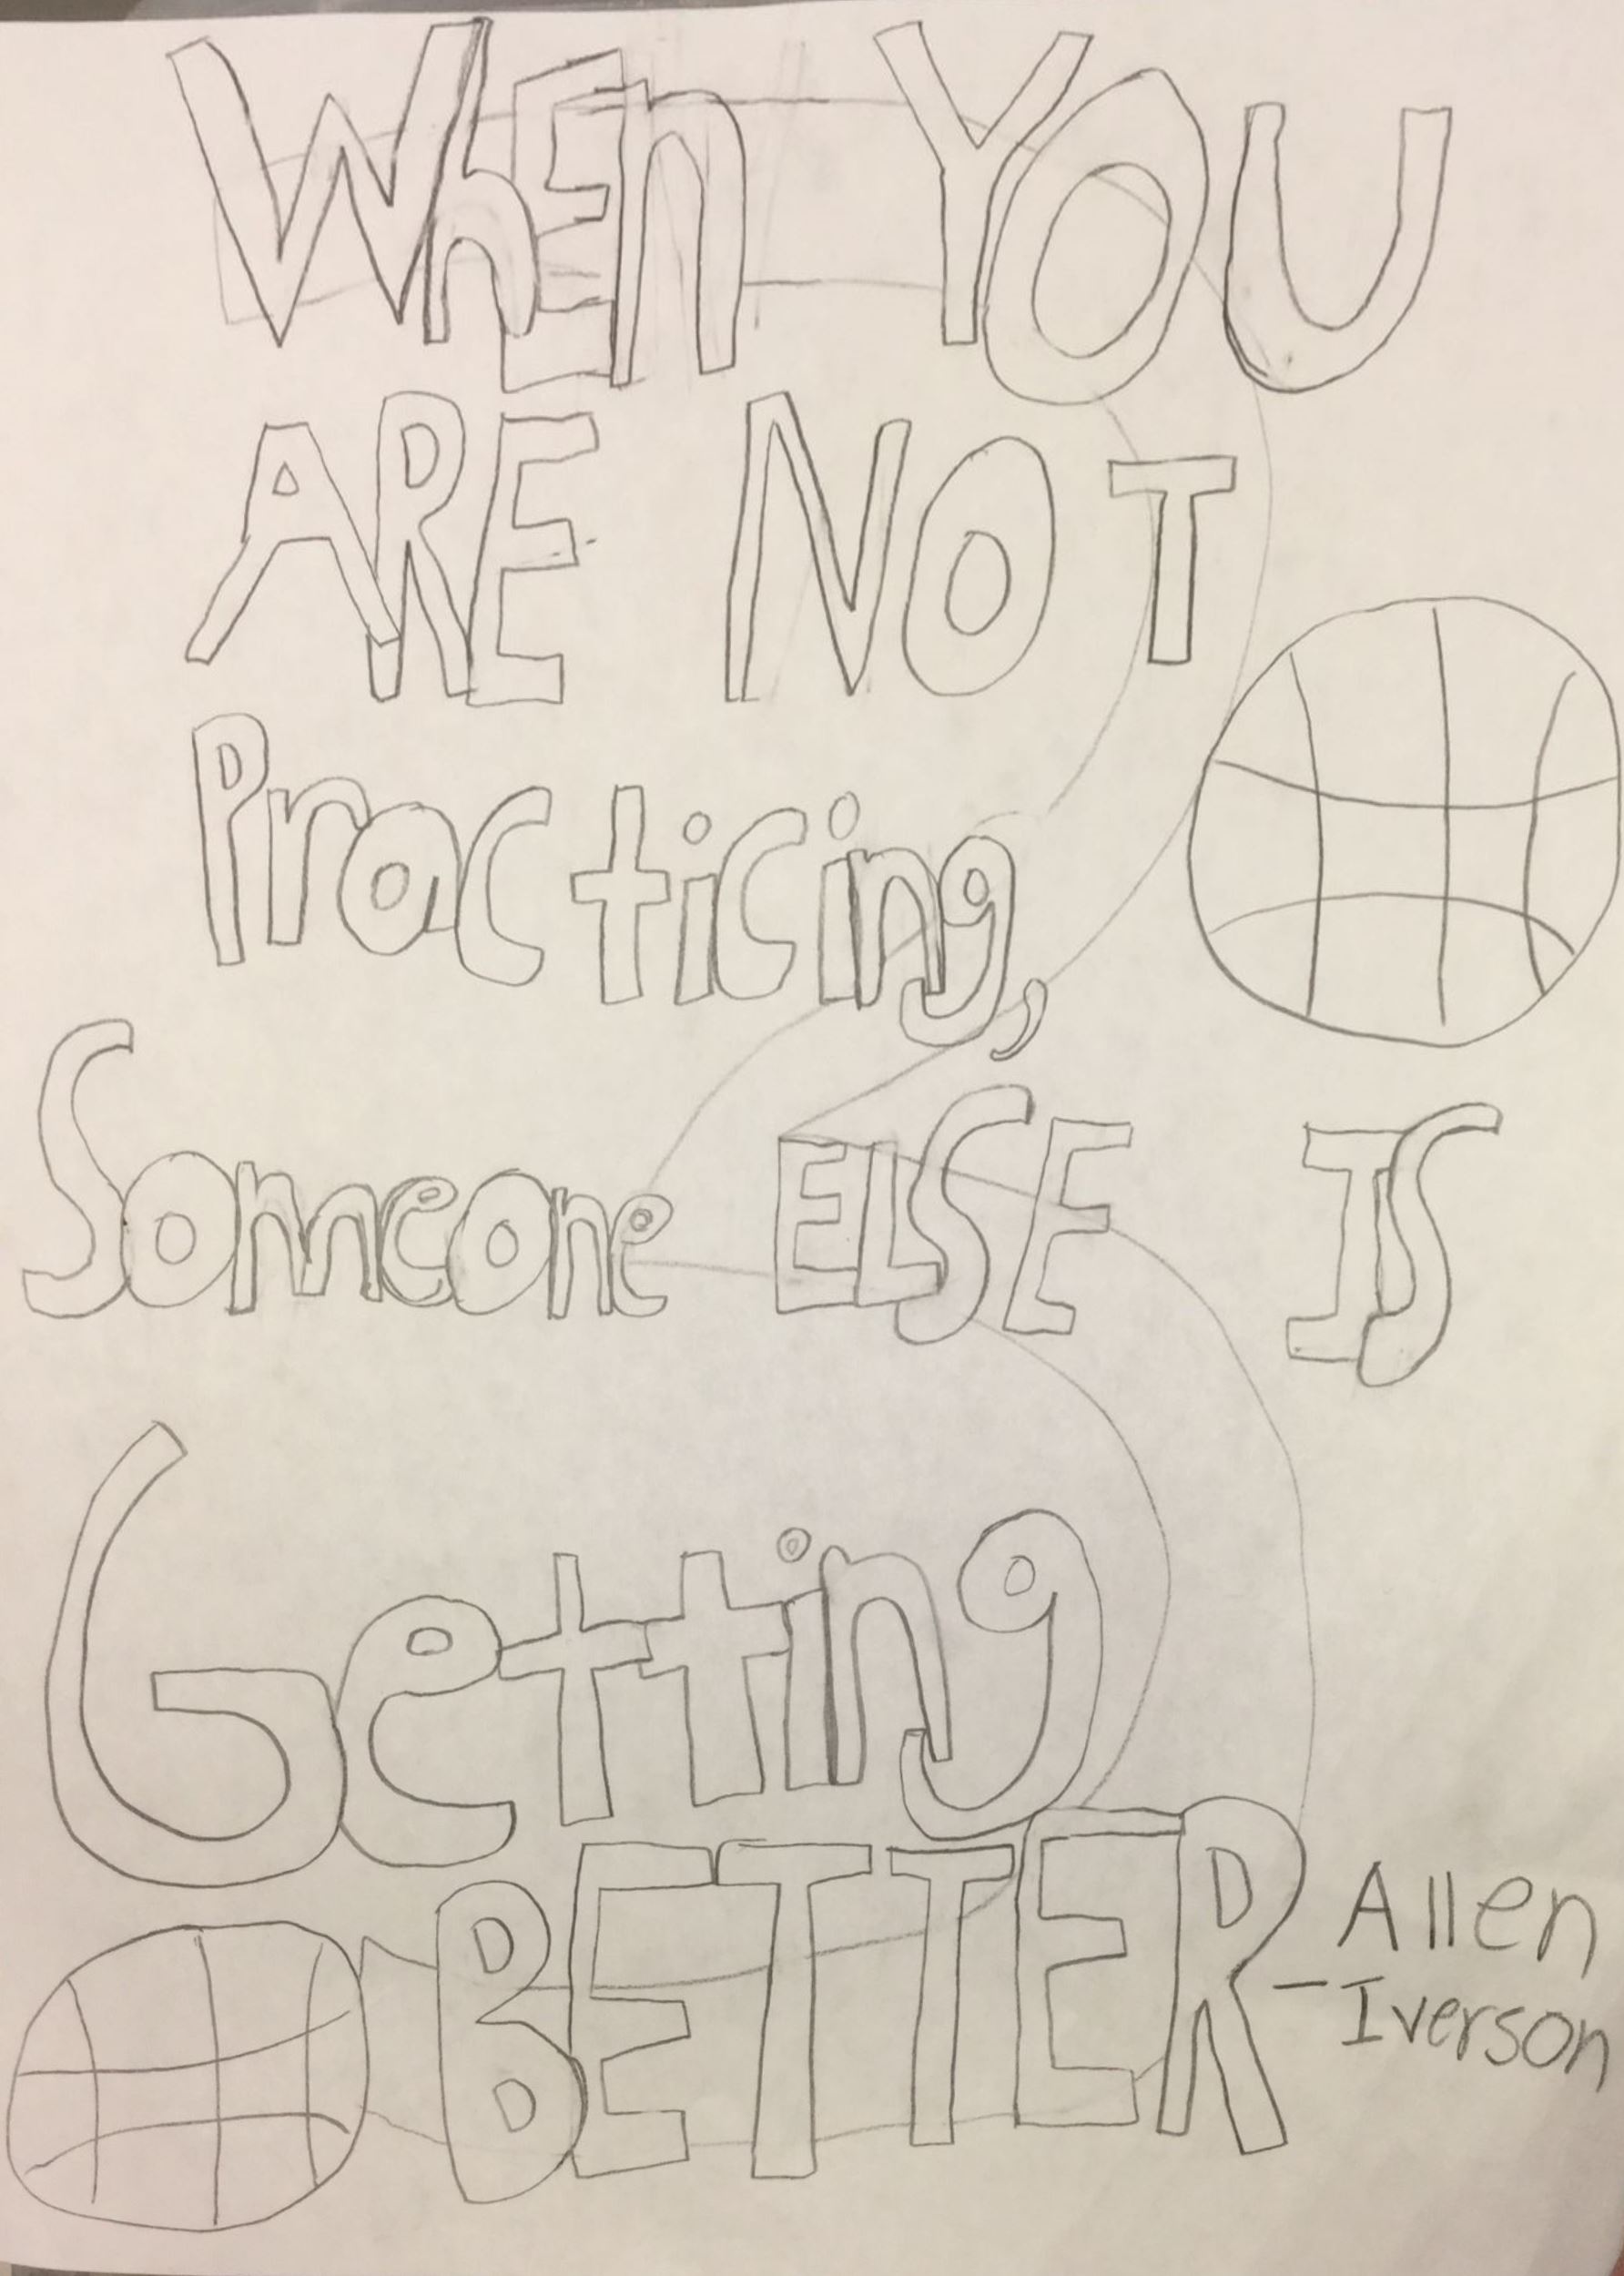 WhEn YOU
ARE NOT
Practicing,
Someone ELSE IS
Getting
BETTER
Allen
- Iverson